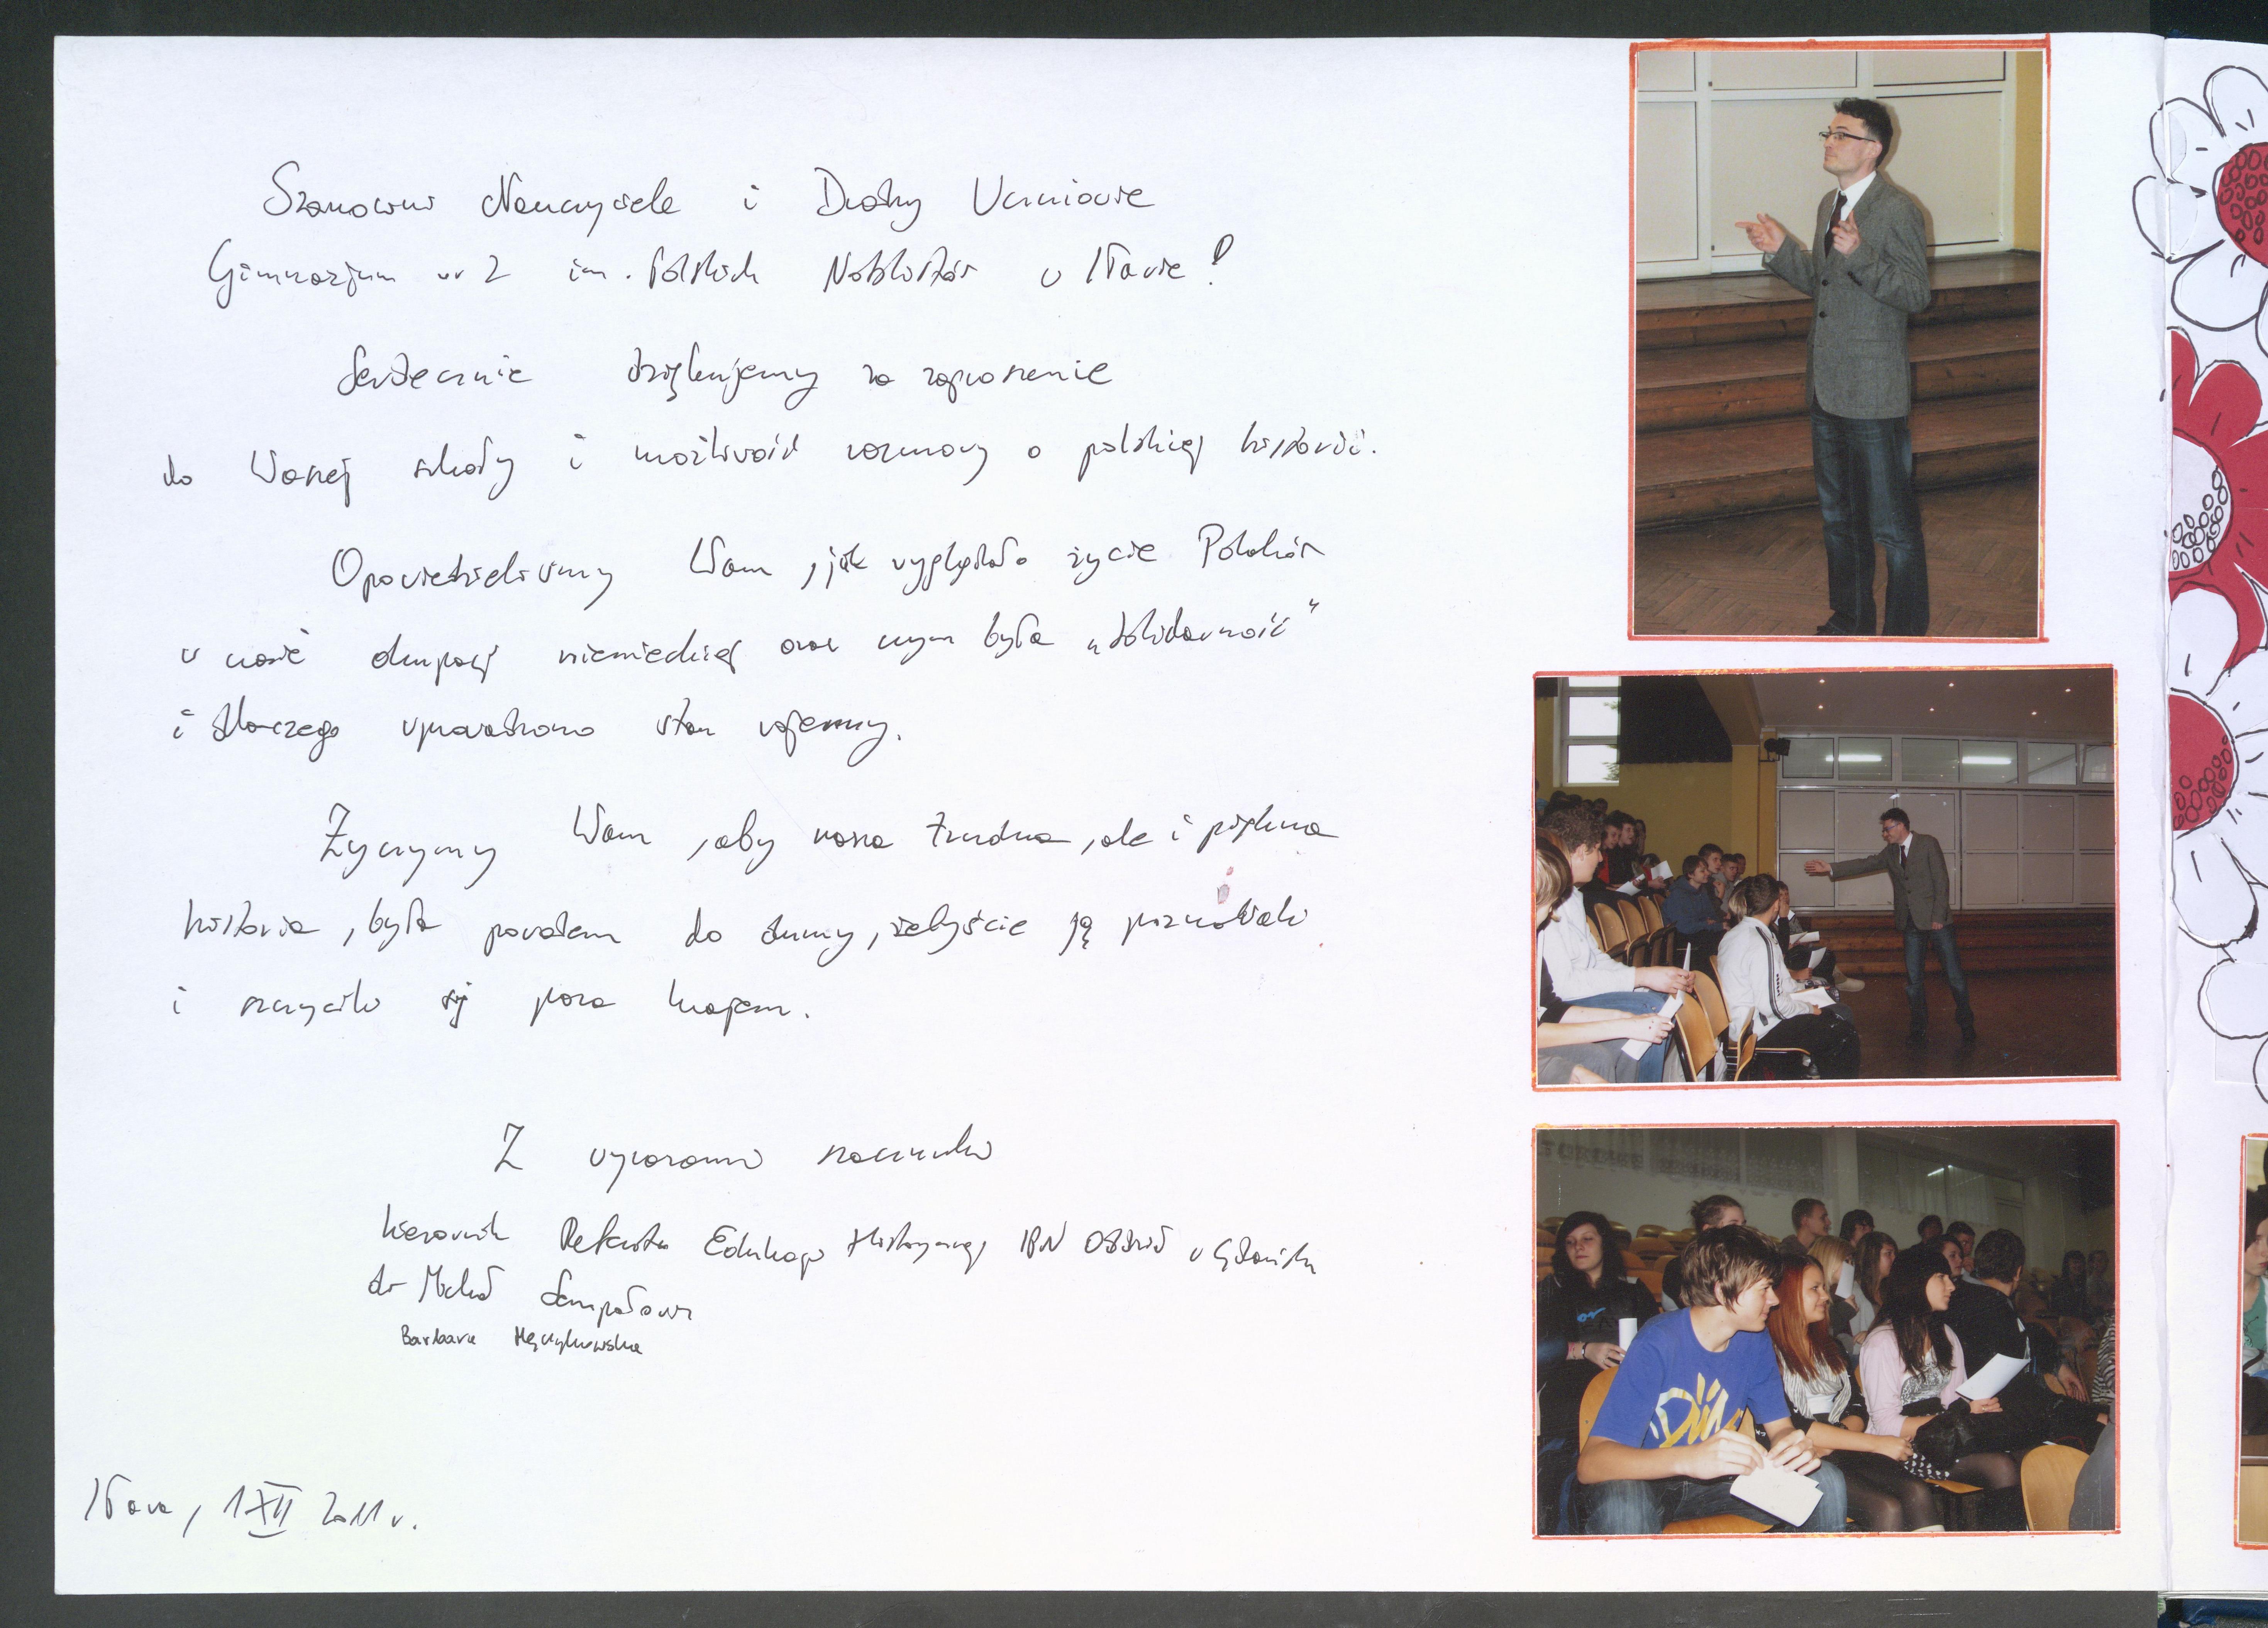 Szanowni Nauczyciele i Drodzy Uczniowie
Gimnazjum nr 2 im. Polskich Noblistów w Iławie!
Serdecznie dziękujemy za zaproszenie
do Waszej szkoły i możliwość rozmowy o polskiej historii.
Opowiedzieliśmy Wam, jak wyglądało życie Polaków
w czasie okupacji niemieckiej oraz czym była „Solidarność”
i dlaczego wprowadzono stan wojenny.
Życzymy Wam, aby nasza trudna, ale i piękna
historia, była powodem do dumy, żebyście ją poznawali
i szczycili się poza krajem.
Z wyrazami szacunku
kierownik Referatu Edukacji Historycznej IPN w Gdańsku
dr
Barbara
Iława, 1 XII 2011 r.